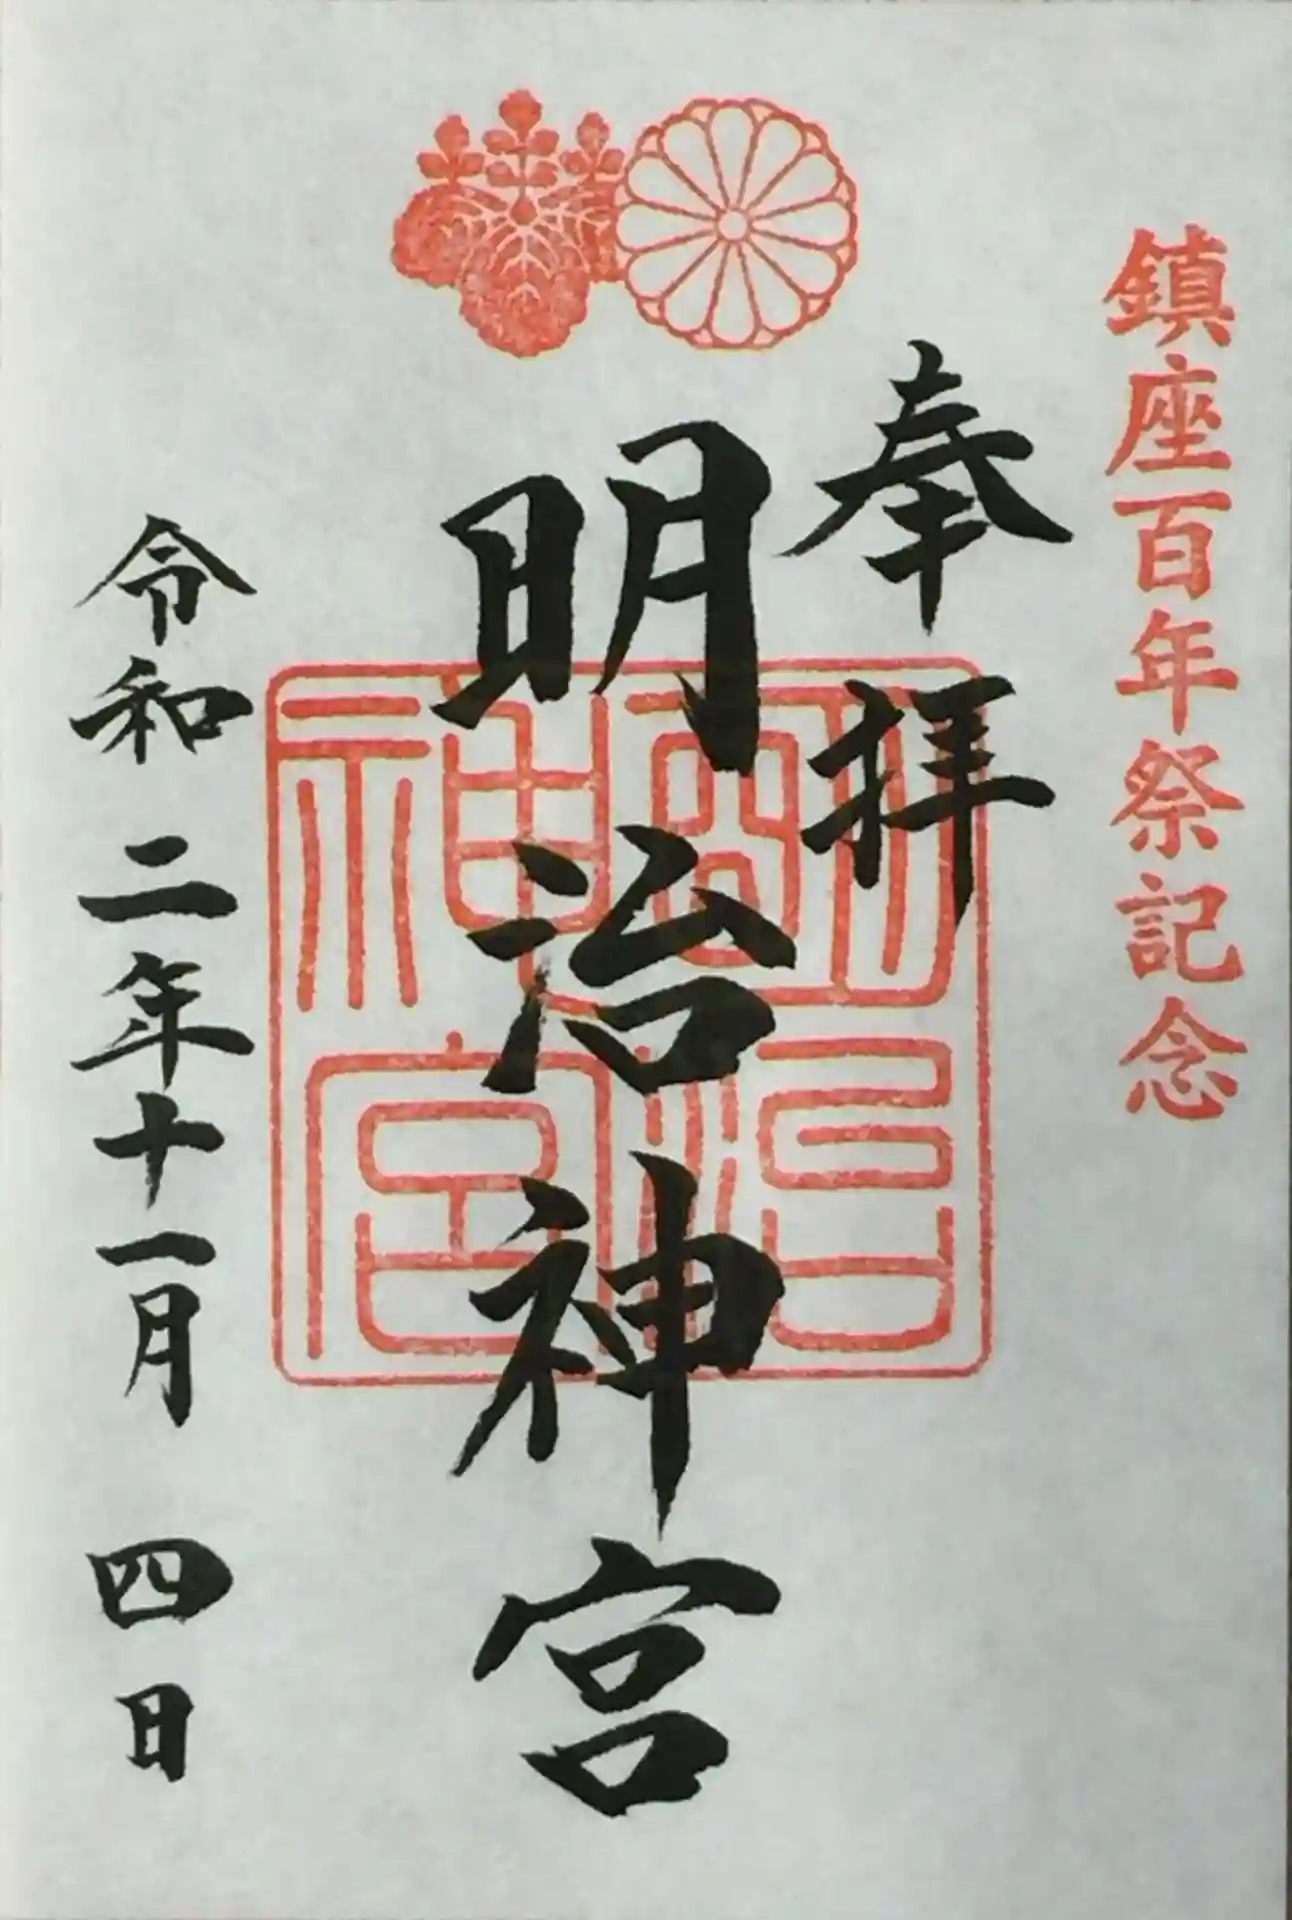 鎮座百年祭記念
奉拝
明治神宮
明治神宮
令和二年十一月四日